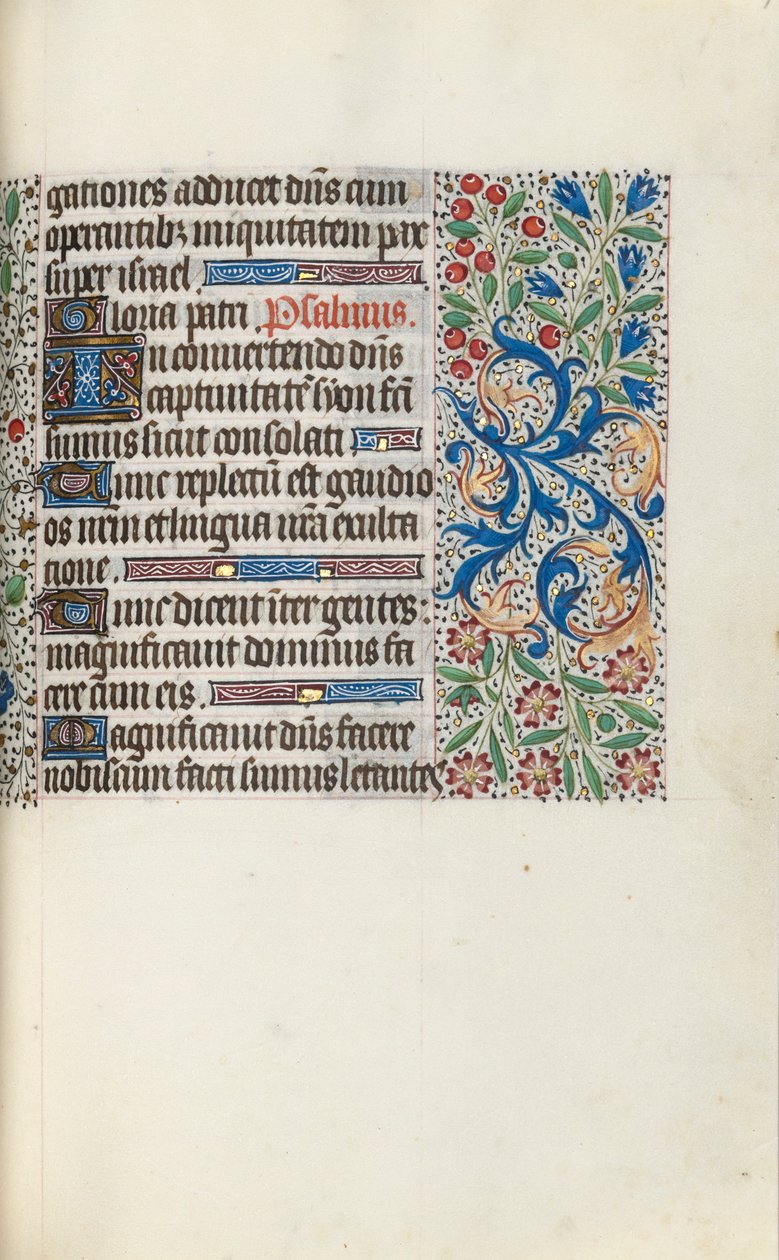 gationes adducet dn̄s cum
operantibꝫ iniquitatem pax
super israel.
Gloria patri. Psalmus.
In conuertendo dn̄s
captiuitatē syon fcī
sumus sicut consolati
Tunc repletū est gaudio
os nr̄m et lingua nr̄a exulta
tione
Tunc dicent īter gentes:
magnificauit dominus fa
cere cum eis.
Magnificauit dn̄s facere
nobiscum facti sumus letantes